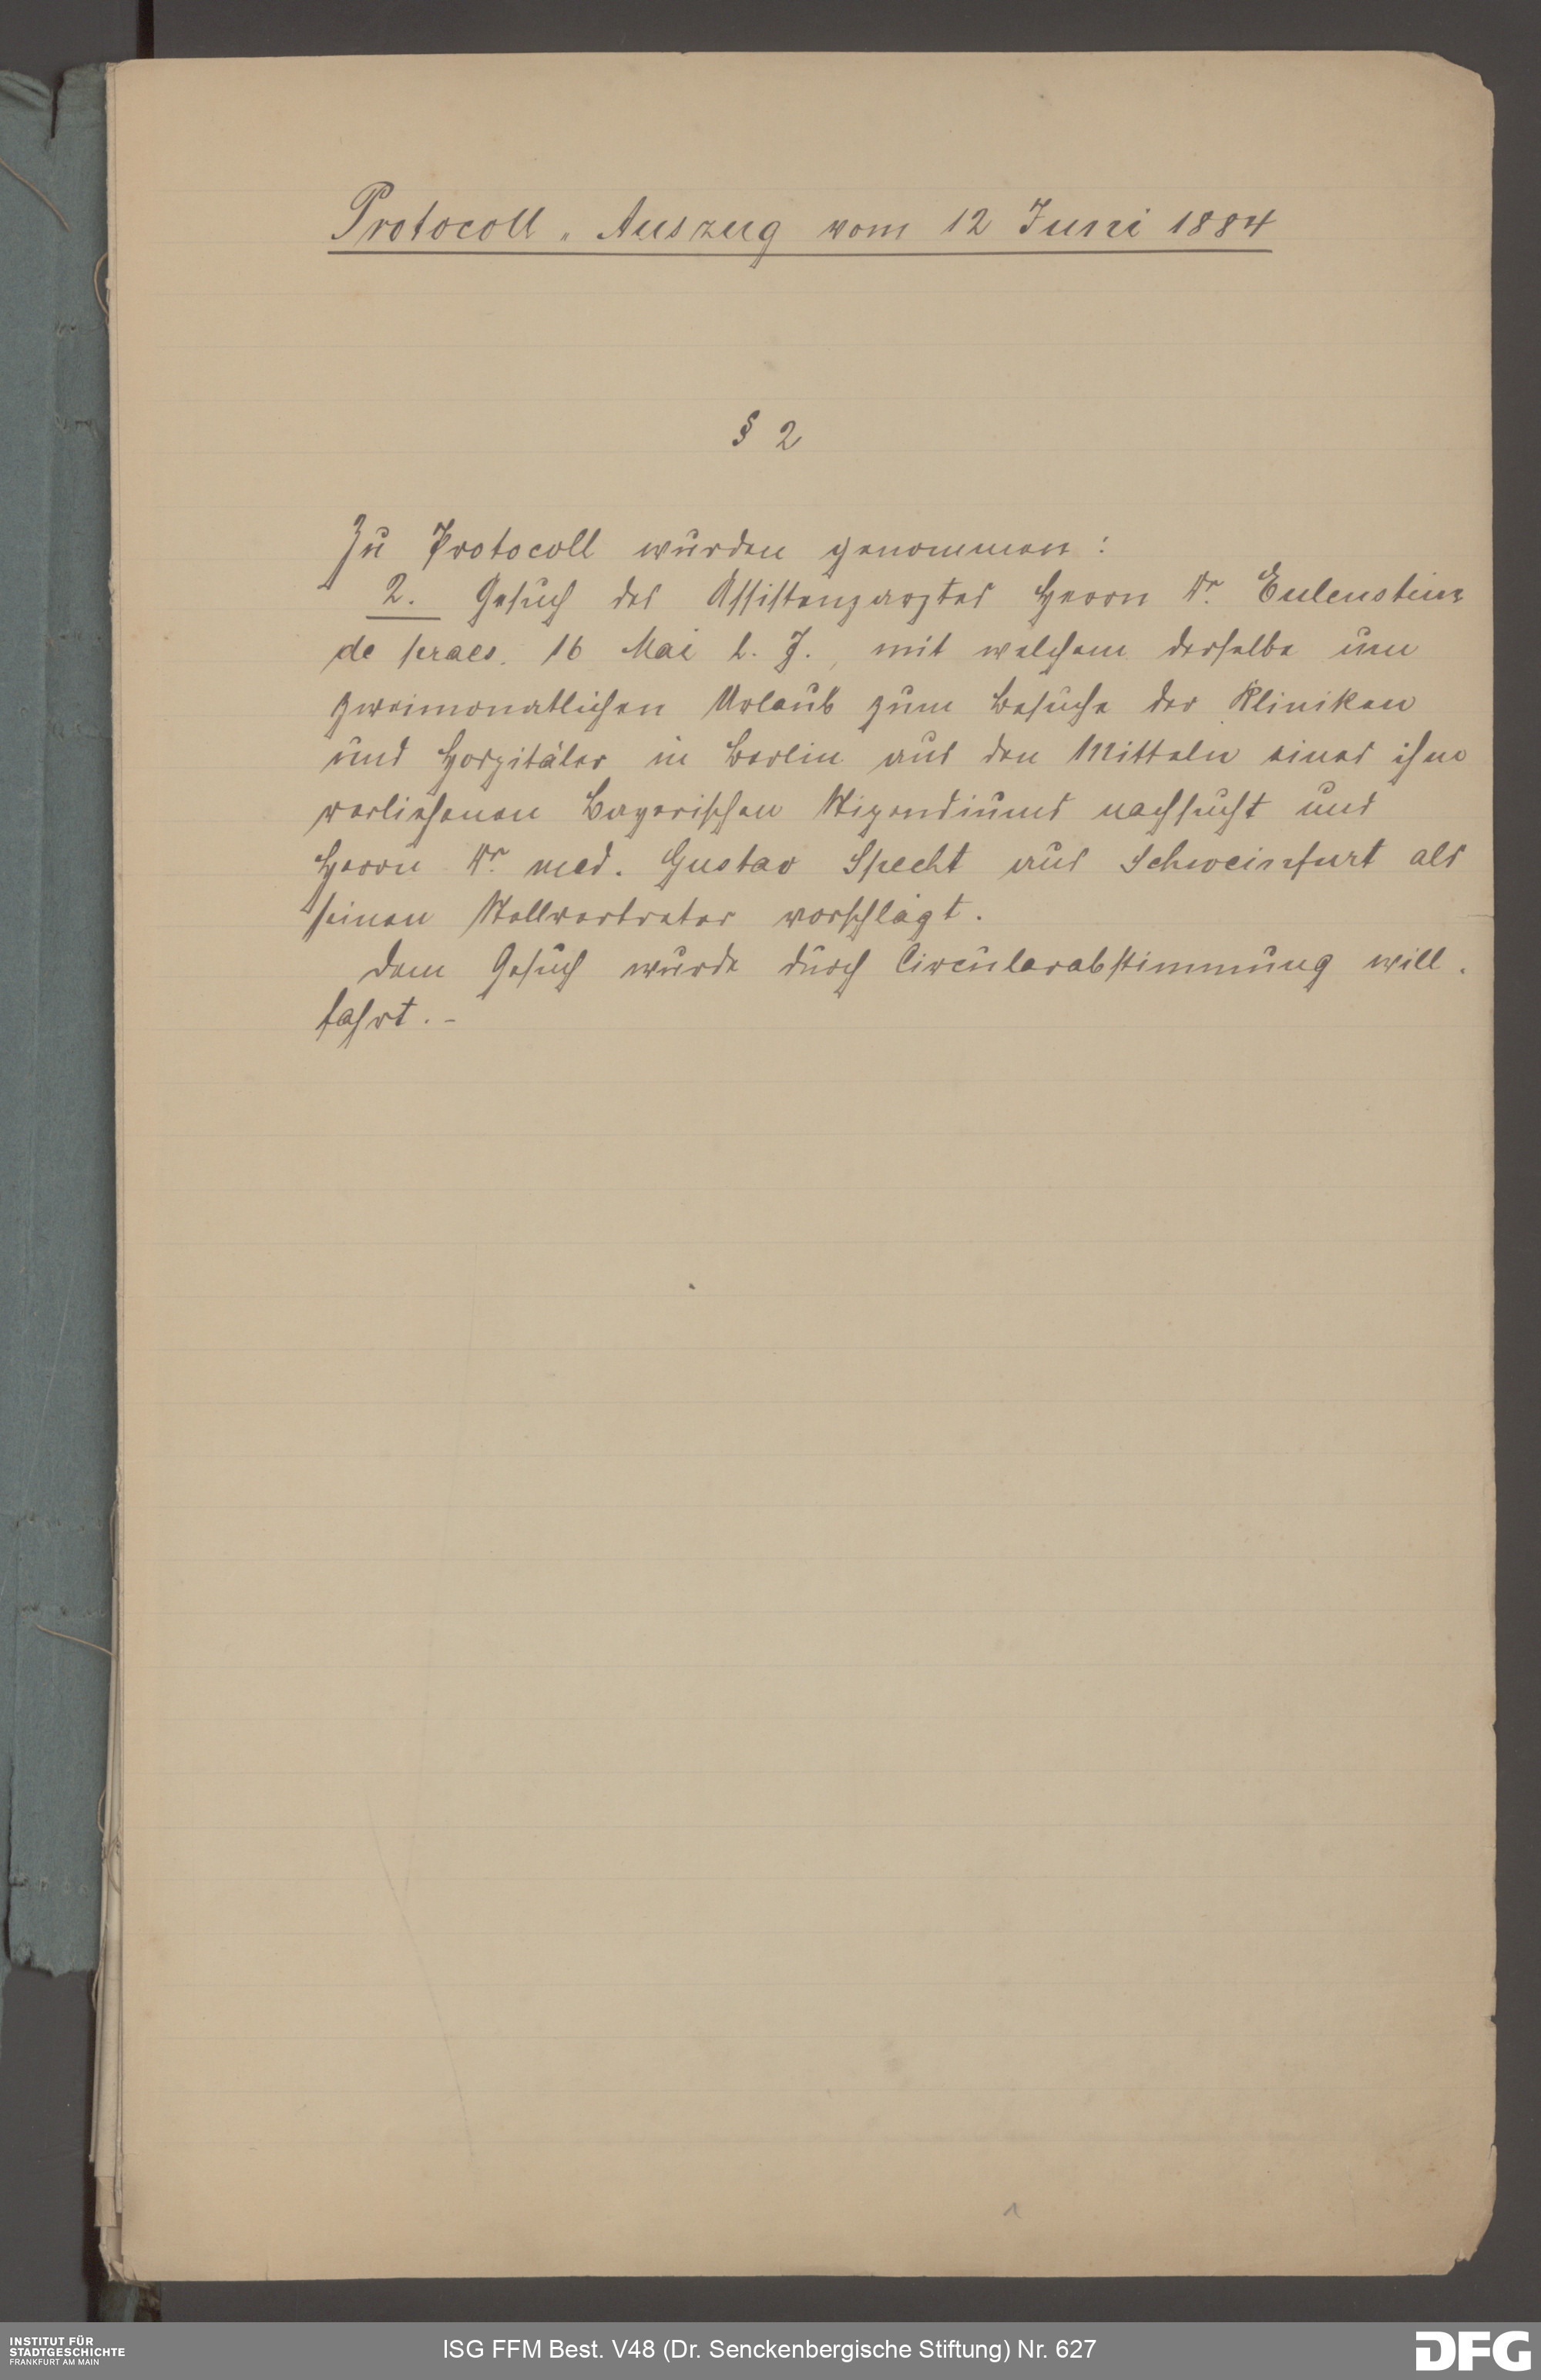 Protocoll-Auszug vom 12 Juni 1884
§ 2
Zu Protocoll wurden genommen:
2. Gesuch des Assistenzarztes Herrn Dr. Eulenstein
de praes. 16 Mai l. J., mit welchem derselbe um
zweimonatlichen Urlaub zum Besuche der Kliniken
und Hospitäler in Berlin aus den Mitteln eines ihm
verliehenen Bayerischen Stipendiums nachsucht und
Herrn Dr. med. Gustav Specht aus Schweinfurt als
seinen Stellvertreter vorschlägt.
Dem Gesuch wurde durch Circularabstimmung will-
fahrt. -
1
INSTITUT FÜR
STADTGESCHICHTE
FRANKFURT AM MAIN
ISG FFM Best. V48 (Dr. Senckenbergische Stiftung) Nr. 627
DFG